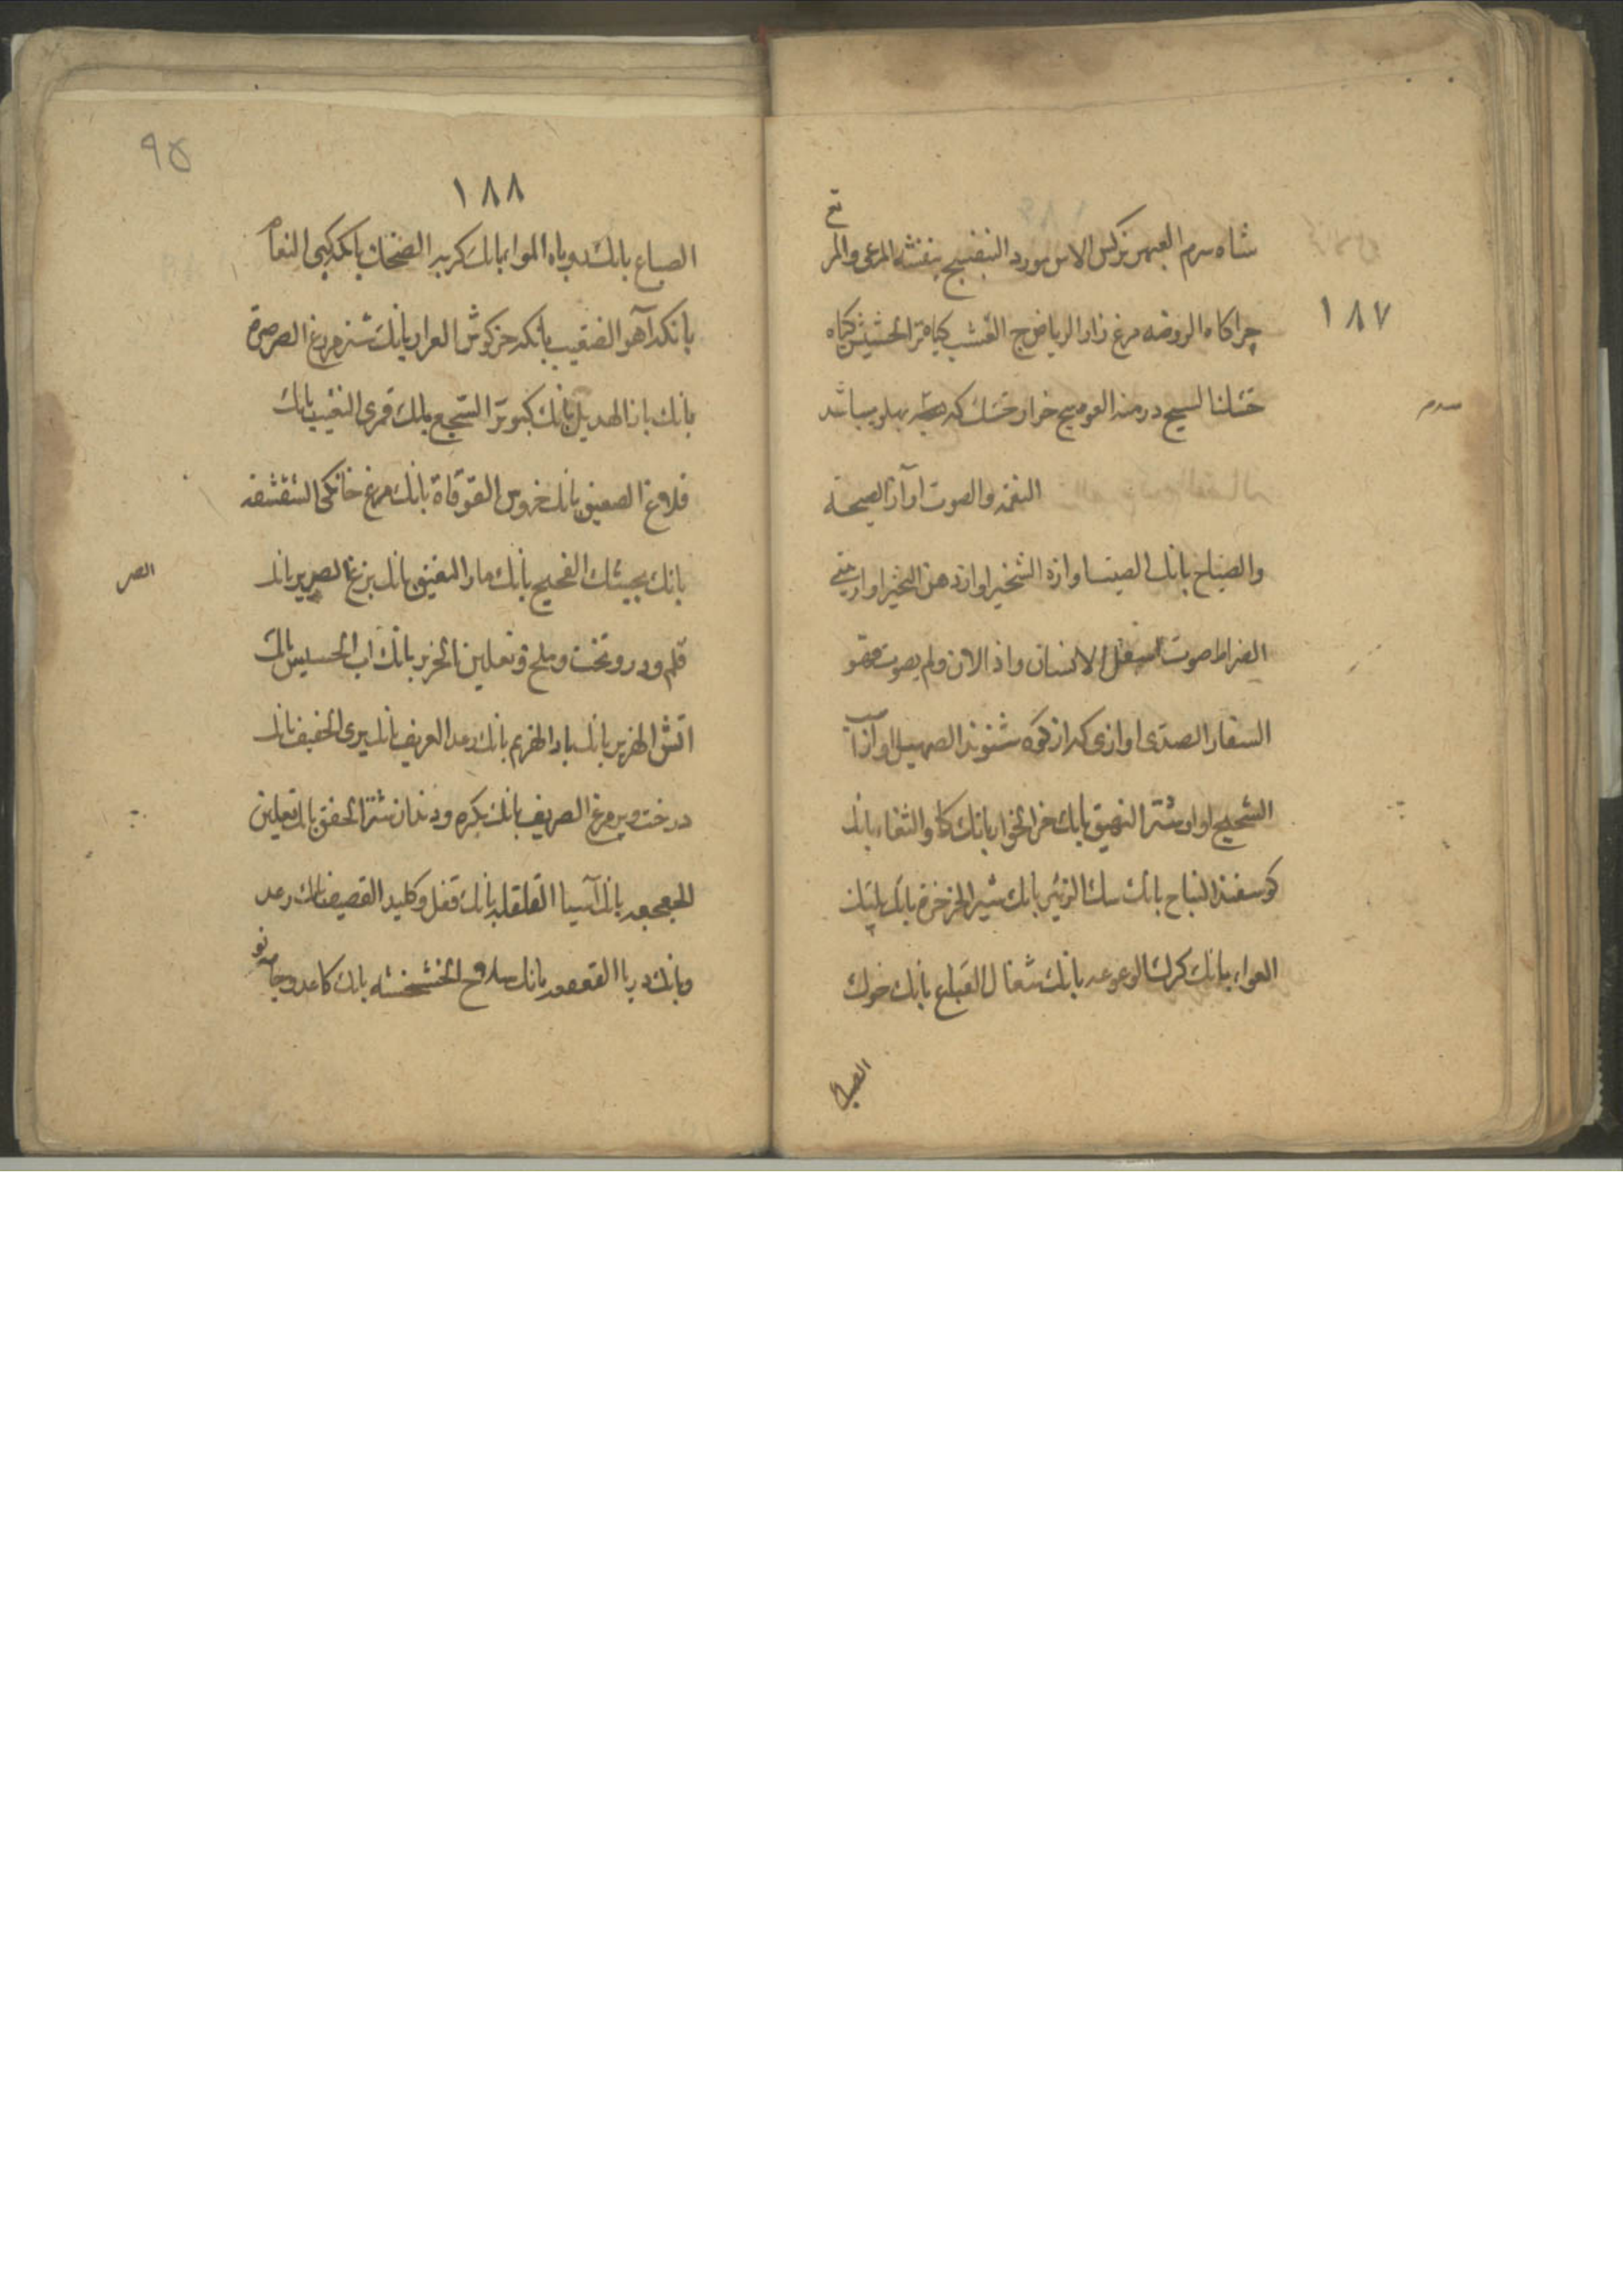 ١٨٧
شاه سرم العبهر نركس الاس مورد البنفسج بنفشه المرعى والمر
تع
چراكاه الروضه مرغ زار الرياض ج العشب كياه تر الحشيش كياه
خشك الشيح درمنه العوسج خار خشك كه پهلو ميباشد
سرم
النغمه والصوت اواز الصيحة
والصياح بانك الصيت اوازه الشخير اواز دهن النخير اواز بينى
الضراط صوت اسفل الانسان واذا لان ولم يصوت فهو
السفار الصدى اوازى كه از كوه شنوند الصهيل اواز اسب
الشحيج اواز شتر النهيق بانك خر الخوار بانك كاو الثغاء بانك
كوسفند النباح بانك سك الزئير بانك شير الخرخرة بانك پلنك
العواء بانك كرك الوعوعه بانك شغال القباع بانك خوك
الضباح
٩٥
١٨٨
الضباع بانك روباه المواء بانك كربه الضحك بانك كپى النغام
بانك آهو الضغيب بانك خركوش العرار بانك شتر مرغ الصرصرة
بانك باز الهديل بانك كبوتر السجع بانك قمرى النغيب بانك
كلاغ الصعيق بانك خروس القوقاة بانك مرغ خانكى الشقشقه
بانك بجيشك الفحيح بانك مار النقيق بانك بزغ الصرير بانك
الصر
قلم ودر وتخت وملخ ونعلين الخرير بانك اب الحسيس بانك
اتش الهزيز بانك باد الهزيم بانك رعد العزيف بانك پرى الحفيف بانك
درخت وپر مرغ الصريف بانك بكره ودندان شتر الخفق بانك نعلين
الجعجعه بانك آسيا القلقله بانك قفل وكليد القصيف بانك رعد
وبانك دريا القعقعه بانك سلاح الخشخشه بانك كاغد وجامه نو